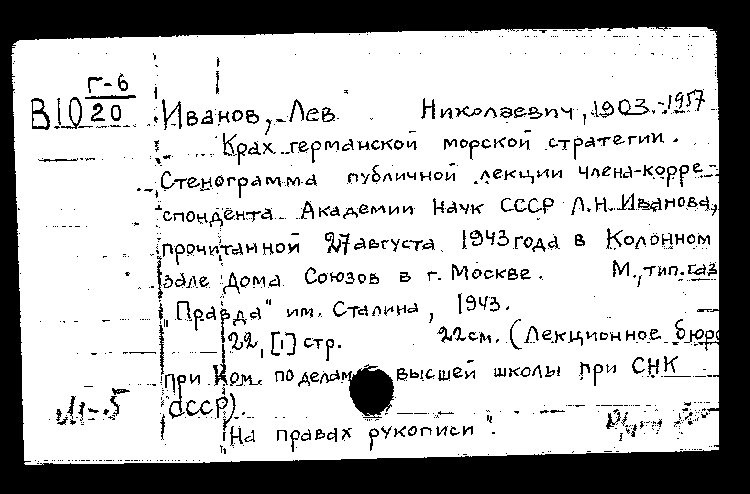 В10 Г-6/20
Иванов, Лев Николаевич, 1903-1957
Крах германской морской стратегии.
Стенограмма публичной лекции члена-корре-
спондента Академии Наук СССР Л.Н. Иванова,
прочитанной 27 августа 1943 года в Колонном
зале Дома Союзов в г. Москве. М., тип. газ
"Правда" им. Сталина, 1943.
22, [1] стр. 22 см. (Лекционное бюро
при Ком. по делам высшей школы при СНК
СССР).
М-5
"На правах рукописи".